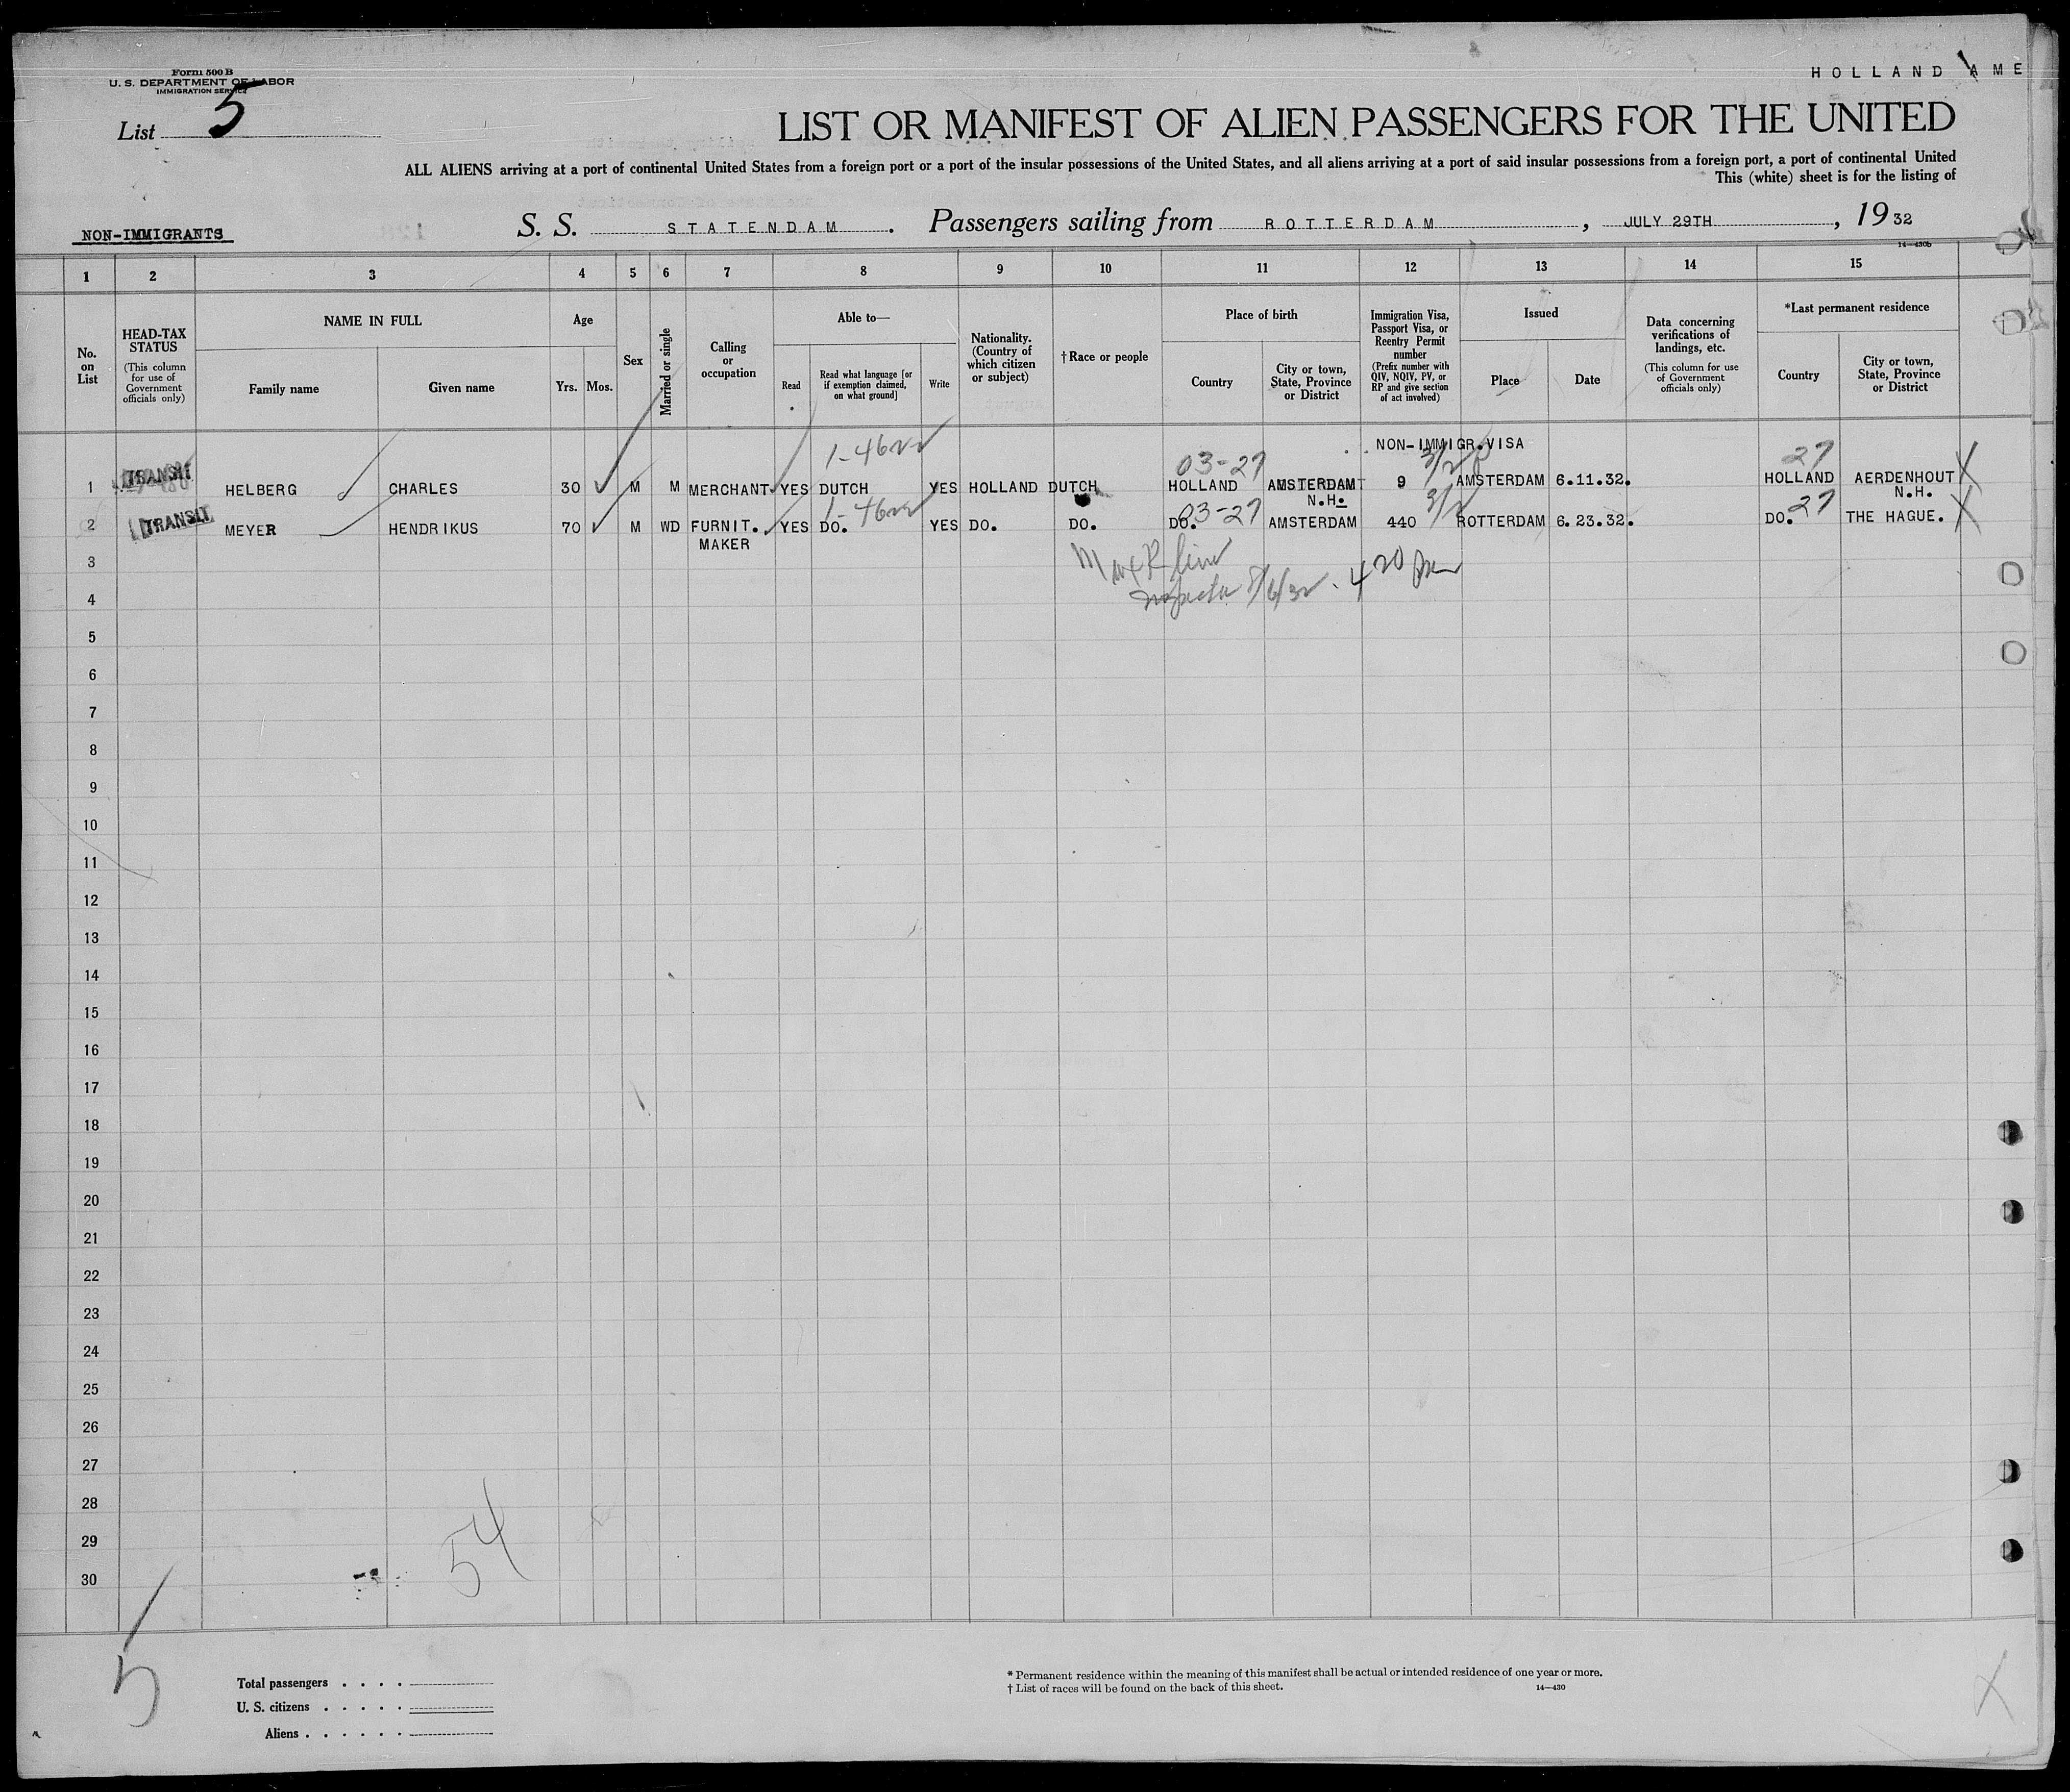 Form 500 B
U. S. DEPARTMENT OF LABOR
IMMIGRATION SERVICE
List 5
HOLLAND AME
LIST OR MANIFEST OF ALIEN PASSENGERS FOR THE UNITED
ALL ALIENS arriving at a port of continental United States from a foreign port or a port of the insular possessions of the United States, and all aliens arriving at a port of said insular possessions from a foreign port, a port of continental United
This (white) sheet is for the listing of
NON-IMMIGRANTS
S. S. STATENDAM. Passengers sailing from ROTTERDAM, JULY 29TH, 1932
14—430b
1 2 3 4 5 6 7 8 9 10 11 12 13 14 15
No. on List
HEAD-TAX STATUS
(This column for use of Government officials only)
NAME IN FULL
Family name
Given name
Age
Yrs.
Mos.
Sex
Married or single
Calling or occupation
Able to—
Read
Read what language [or if exemption claimed, on what ground]
Write
Nationality. (Country of which citizen or subject)
†Race or people
Place of birth
Country
City or town, State, Province or District
Immigration Visa, Passport Visa, or Reentry Permit number
(Prefix number with QIV, NQIV, PV, or RP and give section of act involved)
Issued
Place
Date
Data concerning verifications of landings, etc.
(This column for use of Government officials only)
*Last permanent residence
Country
City or town, State, Province or District
NON-IMMIGR.VISA
03-27
27
1 TRANSIT HELBERG CHARLES 30 M M MERCHANT YES DUTCH YES HOLLAND DUTCH HOLLAND AMSTERDAM 9 AMSTERDAM 6.11.32. HOLLAND AERDENHOUT
N.H.
N.H.
03-27
27
2 TRANSIT MEYER HENDRIKUS 70 M WD FURNIT. YES DO. YES DO. DO. DO. AMSTERDAM 440 ROTTERDAM 6.23.32. DO. THE HAGUE.
MAKER
3
Inspector 8/6/32
4
5
6
7
8
9
10
11
12
13
14
15
16
17
18
19
20
21
22
23
24
25
26
27
28
29
30
54
5
Total passengers
U. S. citizens
Aliens
* Permanent residence within the meaning of this manifest shall be actual or intended residence of one year or more.
† List of races will be found on the back of this sheet.
14—430